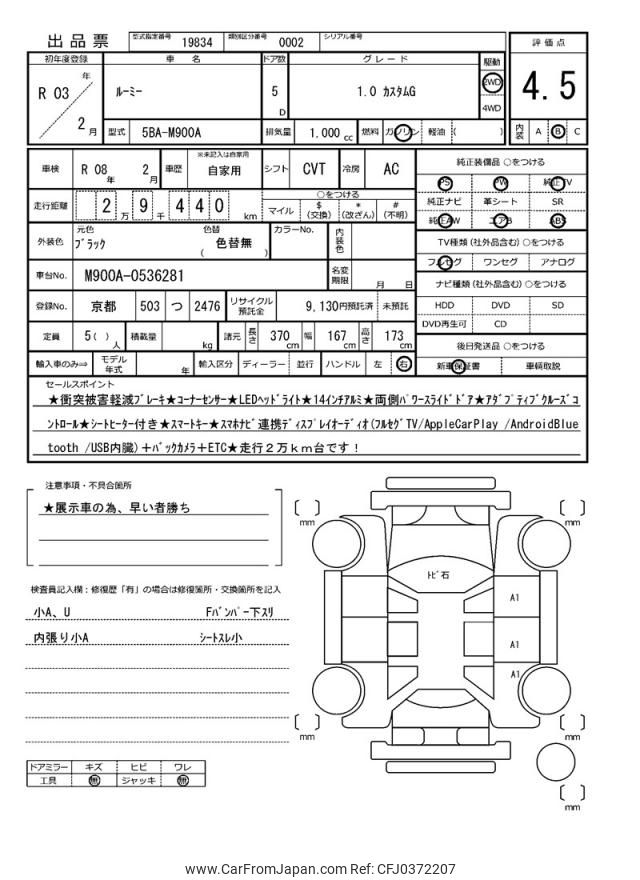 出品票 型式指定番号 19834 類別区分番号 0002 シリアル番号
評価点
4.5
内装 A B C
初年度登録 車名 ドア数 グレード 駆動
R 03 年 2 月
ルーミー 5 D 1.0 カスタムG 2WD 4WD
型式 5BA-M900A 排気量 1.000 cc 燃料 ガソリン 軽油 ( )
車検 R 08 年 2 月 車歴 ※未記入は自家用 自家用 シフト CVT 冷房 AC
走行距離 2 万 9 千 4 4 0 km ○をつける
マイル $ (交換) * (改ざん) # (不明)
外装色 元色 ブラック 色替 ( 色替無 ) カラーNo. 内装色
車台No. M900A-0536281 名変期限 月 日
登録No. 京都 503 つ 2476 リサイクル預託金 9,130円預託済 未預託
定員 5( ) 人 積載量 kg 諸元 長さ 370 cm 幅 167 cm 高さ 173 cm
輸入車のみ⇒ モデル年式 年 輸入区分 ディーラー 並行 ハンドル 左 右
純正装備品 ○をつける
PS PW 純正TV
純正ナビ 革シート SR
純正AW エアB ABS
TV種類 (社外品含む) ○をつける
フルセグ ワンセグ アナログ
ナビ種類 (社外品含む) ○をつける
HDD DVD SD
DVD再生可 CD
後日発送品 ○をつける
新車保証書 車輌取説
セールスポイント
★衝突被害軽減ブレーキ★コーナーセンサー★LEDヘッドライト★14インチアルミ★両側パワースライドドア★アダプティブクルーズコ
ントロール★シートヒーター付き★スマートキー★スマホナビ連携ディスプレイオーディオ(フルセグTV/AppleCarPlay /AndroidBlue
tooth /USB内臓)＋バックカメラ＋ETC★走行２万ｋｍ台です！
注意事項・不具合箇所
★展示車の為、早い者勝ち
検査員記入欄：修復歴「有」の場合は修復箇所・交換箇所を記入
小A、U Fバンパー下スリ
内張り小A シートスレ小
ドアミラー キズ ヒビ ワレ
工具 無 ジャッキ 無
mm
mm
トビ石
A1
A1
A1
mm
mm
mm
www.CarFromJapan.com Ref: CFJ0372207